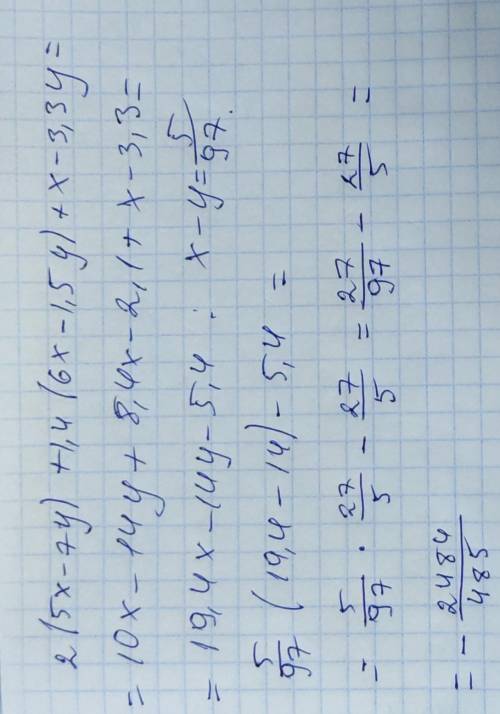 2(5x-7y)+1,4(6x-1,5y)+x-3,3y=
=10x-14y+8,4x-2,1+x-3,3=
=19,4x-14y-5,4; x-y=5/97.
5/97(19,4-14)-5,4=
=5/97·27/5-27/5=27/97-27/5=
=-2484/485